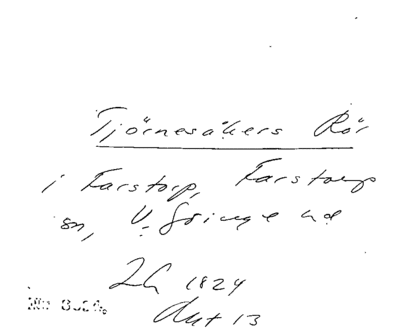 Tjörnesåkers Rör
i Farstorp, Farstorp
sn, V. Göinge hd
LG 1824
Akt 13